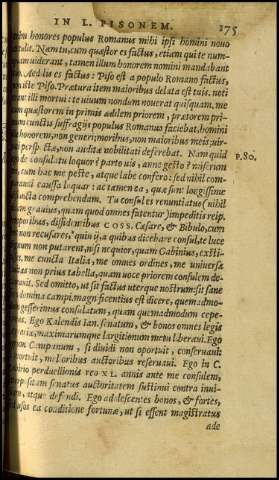 IN L. PISONEM. 175
bui honores populus Romanus mihi ipsi homini nouo
tulit. Nam tu, cum quæstor es factus, etiam qui te num-
quam uiderant, tamen illum honorem nomini mandabant
tuo. Aedilis es factus: Piso est a populo Romano factus,
non iste Piso. Prætura item maioribus delata est tuis. noti
erant illi mortui: te uiuum nondum nouerat quisquam. me
cum quæstorem in primis ædilem priorem, prætorem pri-
mum cunctis suffragijs populus Romanus faciebat, homini
ille honorem, non generi; moribus, non maioribus meis; uir-
tuti perspectæ, non auditæ nobilitati deferebat. Nam quid
ego de consulatu loquor? parto uis, anne gesto? miserum P. 80.
me, cum hac me peste, atque labe confero: sed nihil com-
parandi caussa loquar: ac tamen ea, quæ sunt longissime
disiuncta comprehendam. Tu consul es renuntiatus (nihil
dicam grauius, quam quod omnes fatentur) impeditis reip.
temporibus, dissidentibus COSS. Cæsare, & Bibulo, cum
hoc non recusares, quin ij, a quibus dicebare consul, te luce
dignum non putarent, nisi nequior, quam Gabinius, exsti-
tisses. me cuncta Italia, me omnes ordines, me uniuersa
ciuitas non prius tabella, quam uoce priorem consulem de-
clarauit. Sed omitto, ut sit factus uterque nostrum: sit sane
fors domina campi. magnificentius est dicere, quemadmo-
dum gesserimus consulatum, quam quemadmodum cepe-
rimus. Ego Kalendis Ian. senatum, & bonos omnes legis
agrariæ, maximarumque largitionum metu liberaui. Ego
agrum Campanum, si diuidi non oportuit, conseruaui:
si oportuit, melioribus auctoribus reseruaui. Ego in C.
Rabirio perduellionis reo XL. annis ante me consulem,
interpositam senatus auctoritatem sustinui contra inui-
diam, atque defendi. Ego adolescentes bonos, & fortes,
sed usos ea conditione fortunæ, ut si essent magistratus
ade